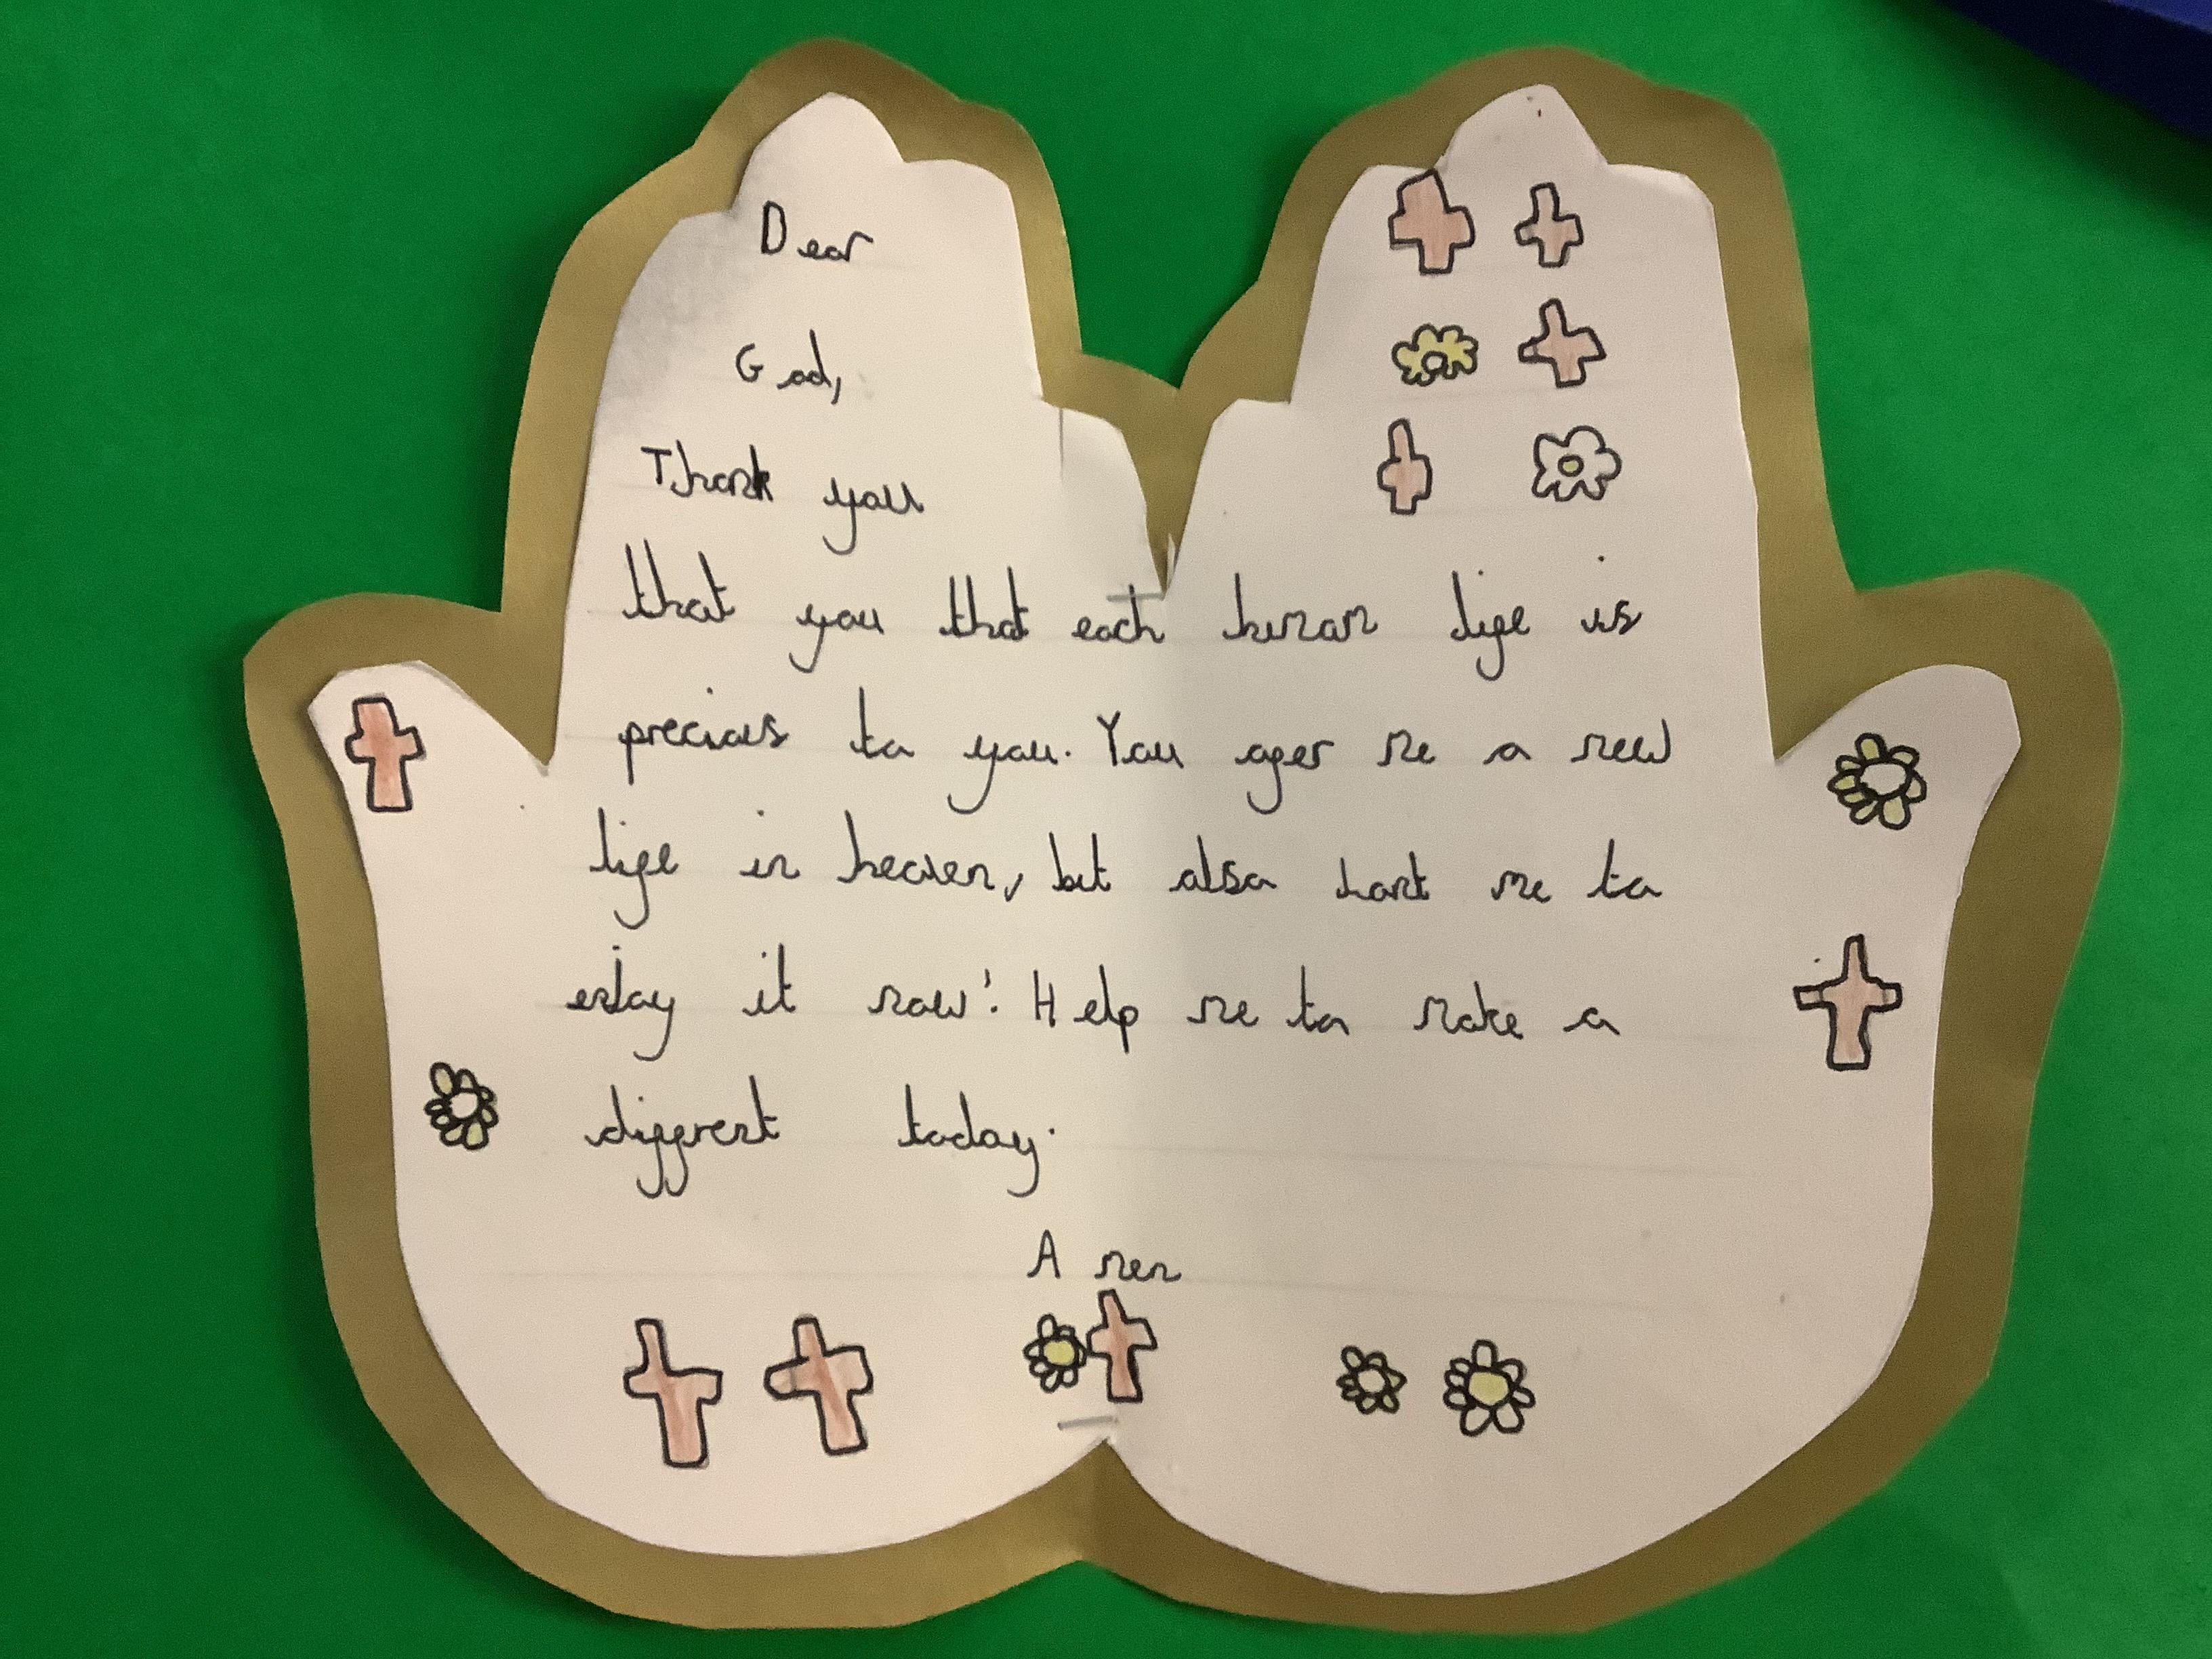 Dear
God,
Thank you
that you that each human life is
precious to you. You offer me a new
life in heaven, but also want me to
enjoy it now! Help me to make a
diffrent today.
Amen